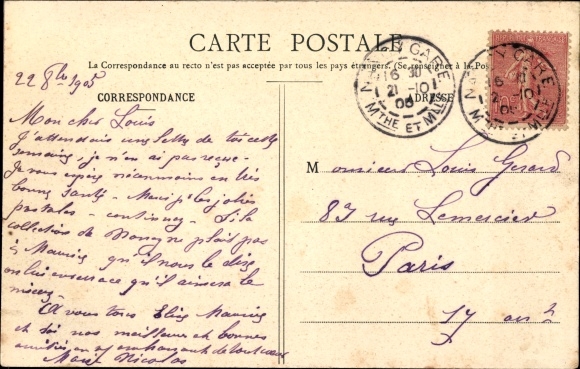 CARTE POSTALE
La Correspondance au recto n'est pas acceptée par tous les pays étrangers. (Se renseigner à la Poste
22 8bre 1905
CORRESPONDANCE
ADRESSE
NANCY GARE
16 30
21 -10
05
MTHE ET MLLE
NANCY GARE
MTHE ET MLLE
Mon cher Louis
J'attendais une lettre de toi cette
semaine, je n'en ai pas reçue -
Je vous espère néanmoins en très
bonne santé - Merci p. les jolies
postales - continuez - Si la
collection de Nancy ne plaît pas
à Maurice qu'il nous le dise
on lui enverra ce qu'il aimera le
mieux -
A vous tous Maurice
et toi nos meilleures et bonnes
amitiés en embrassant de tout cœur
Marie Nicolas
Monsieur Louis Gerard
87 rue Lemercier
Paris
17 arr